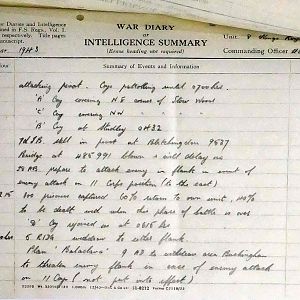 of Duties and Intelligence
ined in F.S. Regs., Vol. I.
respectively. Title pages
manuscript.
WAR DIARY
or
INTELLIGENCE SUMMARY
(Erase heading not required)
Unit. 8 Kings
Commanding Officer
1943
Summary of Events and Information
attacking pivot. Coys patrolling until 0700 hrs.
'A' Coy covering N.E. corner of Stow Wood
'C' Coy covering NW
'B' Coy at Studley 0H32
still in pivot at Bletchingdon 9537
Bridge at H85991 blown & will delay en
prepare to attack enemy in flank in event of
enemy attack on 11 Corps position (to the east)
15 prisoners captured 60% return to own unit. 40%
to be dealt with when this phase of battle is over
'D' Coy moved out at 0615 hrs
5 withdraw to either flank.
Plan 'Balaclava' 9 AD to withdraw area Buckingham
to threaten enemy flank in case of enemy attack
on 11 Corps (not put into effect)